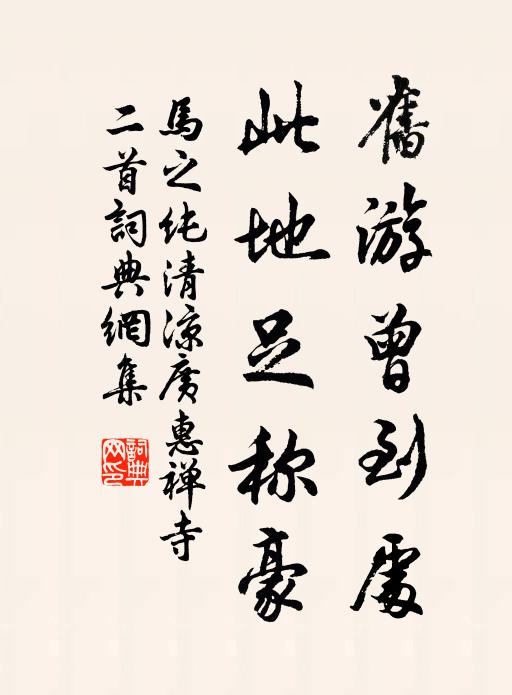 舊游曾到處
此地足称豪
馬之純清涼廣惠禅寺
二首詞典網集
詞典網印